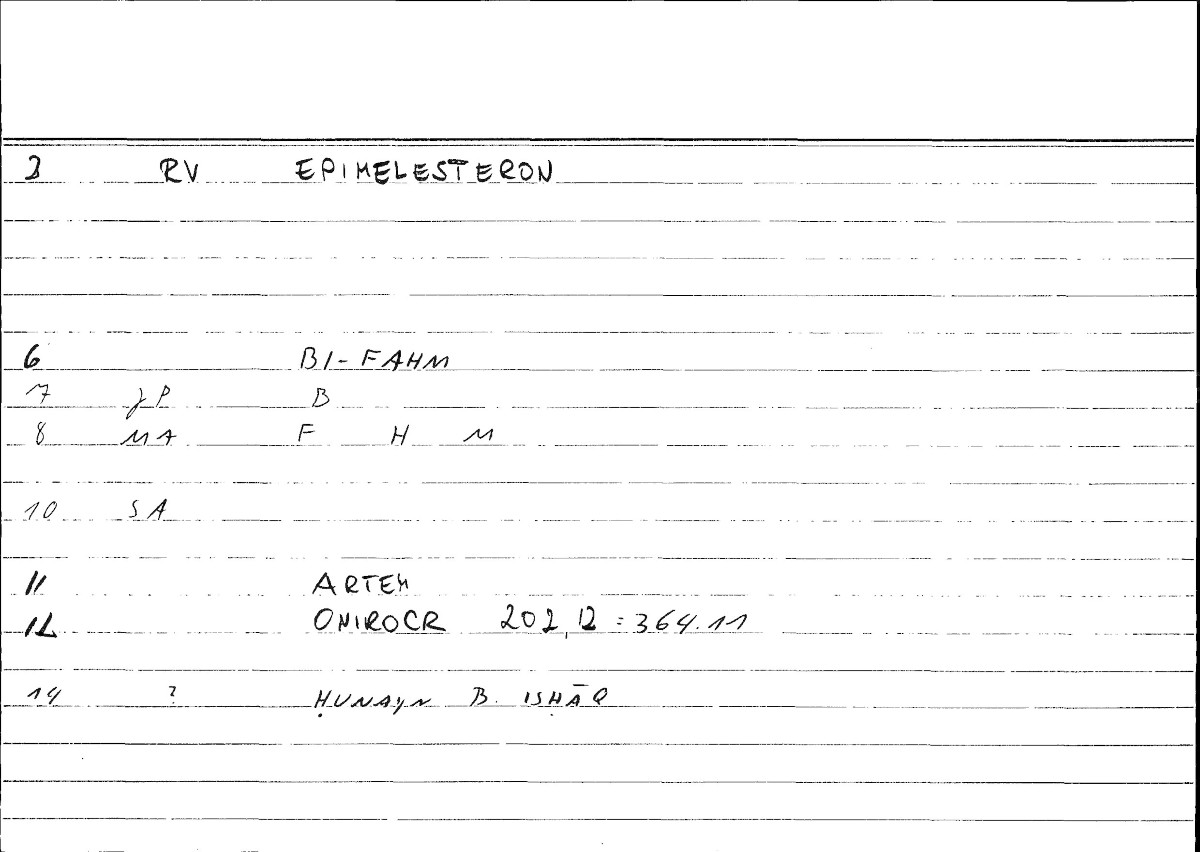 3 RV EPIMELESTERON
6 BI-FAHM
7 JP B
8 MA F H M
10 SA
11 ARTEM
12 ONIROCR 202,12 = 364.11
14 ? ḤUNAYN B. ISḤĀQ